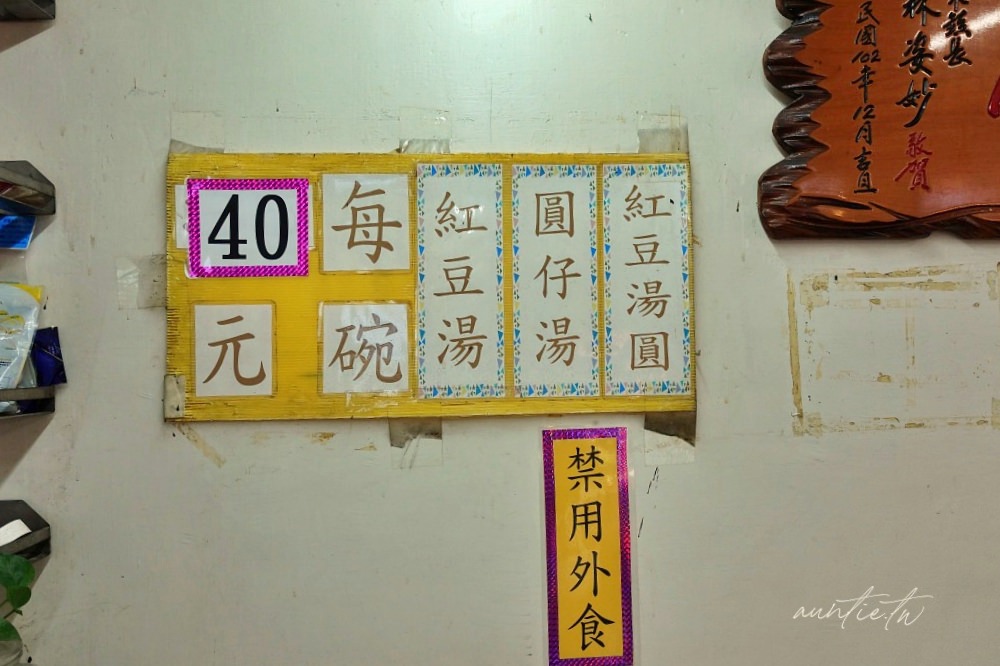 紅豆湯圓
圓仔湯
紅豆湯
每碗
40元
禁用外食
林姿妙
敬賀
民國102年12月吉旦
auntie.tw